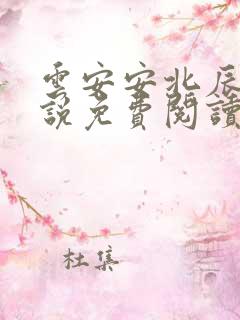 雲安安北辰
說免費閱讀
杜集